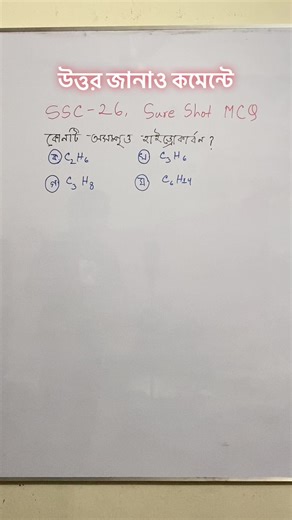 উত্তর জানাও কমেন্টে
SSC-26, Sure Shot MCQ
কোনটি অসম্পৃক্ত হাইড্রোকার্বন ?
ক C₂H₆ খ C₃H₆
গ C₃H₈ ঘ C₆H₁₄